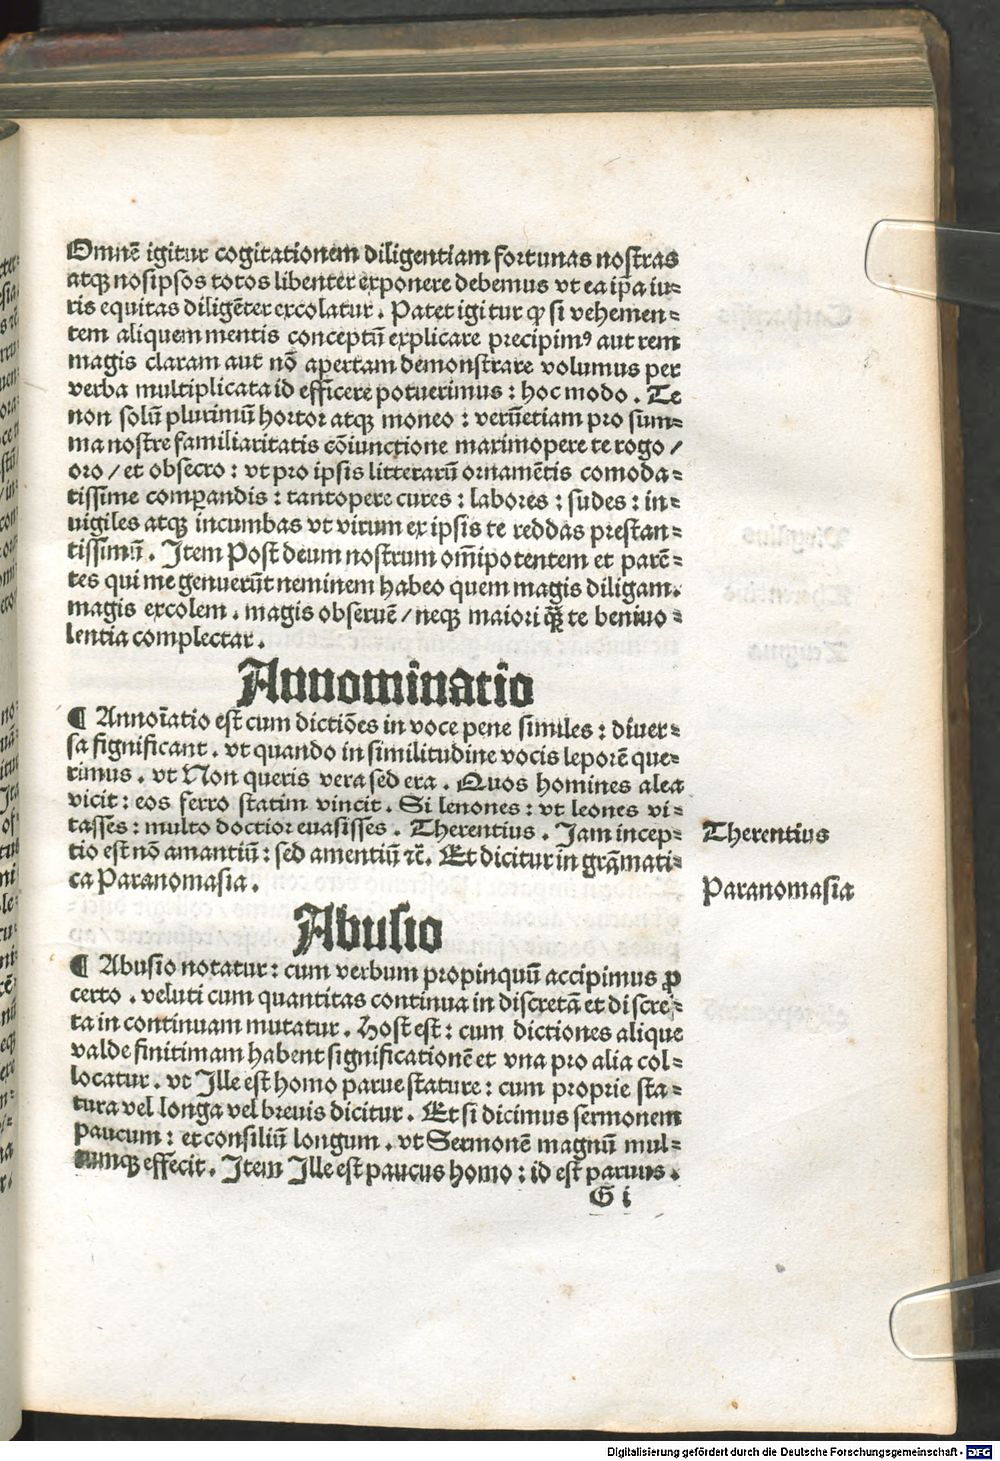 Omnē igitur cogitationem diligentiam fortunas nostras
atqꝫ nosipsos totos libenter exponere debemus vt ea ip̄a iu⸗
ris equitas diligēter excolatur. Patet igitur ꝙ si vehemen⸗
tem aliquem mentis conceptū explicare precipimꝰ aut rem
magis claram aut nō apertam demonstrare volumus per
verba multiplicata id efficere potuerimus: hoc modo. Te
non solū plurimū hortor atqꝫ moneo: verūetiam pro sum⸗
ma nostre familiaritatis cōiunctione maximopere te rogo/
oro/et obsecro: vt pro ipsis litterarū ornamētis comoda⸗
tissime comꝑandis: tantopere cures: labores: sudes: in⸗
uigiles atqꝫ incumbas vt virum ex ipsis te reddas prestan⸗
tissimū. Item Post deum nostrum om̄ipotentem et parē⸗
tes qui me genuerūt neminem habeo quem magis diligam.
magis excolem. magis obseruē/neqꝫ maiori ꝗ̈ te beniuo⸗
lentia complectar.
Annominatio
¶ Annoīatio est cum dictiōes in voce pene similes: diuer⸗
sa significant. vt quando in similitudine vocis leporē que⸗
rimus. vt Non queris vera sed era. Quos homines alea
vicit: eos ferro statim vincit. Si lenones: vt leones vi⸗
tasses: multo doctior euasisses. Therentius. Jam incep⸗
tio est nō amantiū: sed amentiū ꝛc̄. Et dicitur in grāmati⸗
ca Paranomasia.
Therentius
Paranomasia
Abusio
¶ Abusio notatur: cum verbum propinquū accipimus ꝓ
certo. veluti cum quantitas continua in discretā et discre⸗
ta in continuam mutatur. Host est: cum dictiones alique
valde finitimam habent significationē et vna pro alia col⸗
locatur. vt Ille est homo parue stature: cum proprie sta⸗
tura vel longa vel breuis dicitur. Et si dicimus sermonem
paucum: et consiliū longum. vt Sermonē magnū mul⸗
tumqꝫ effecit. Item Ille est paucus homo: id est paruus.
G i
Digitalisierung gefördert durch die Deutsche Forschungsgemeinschaft - DFG